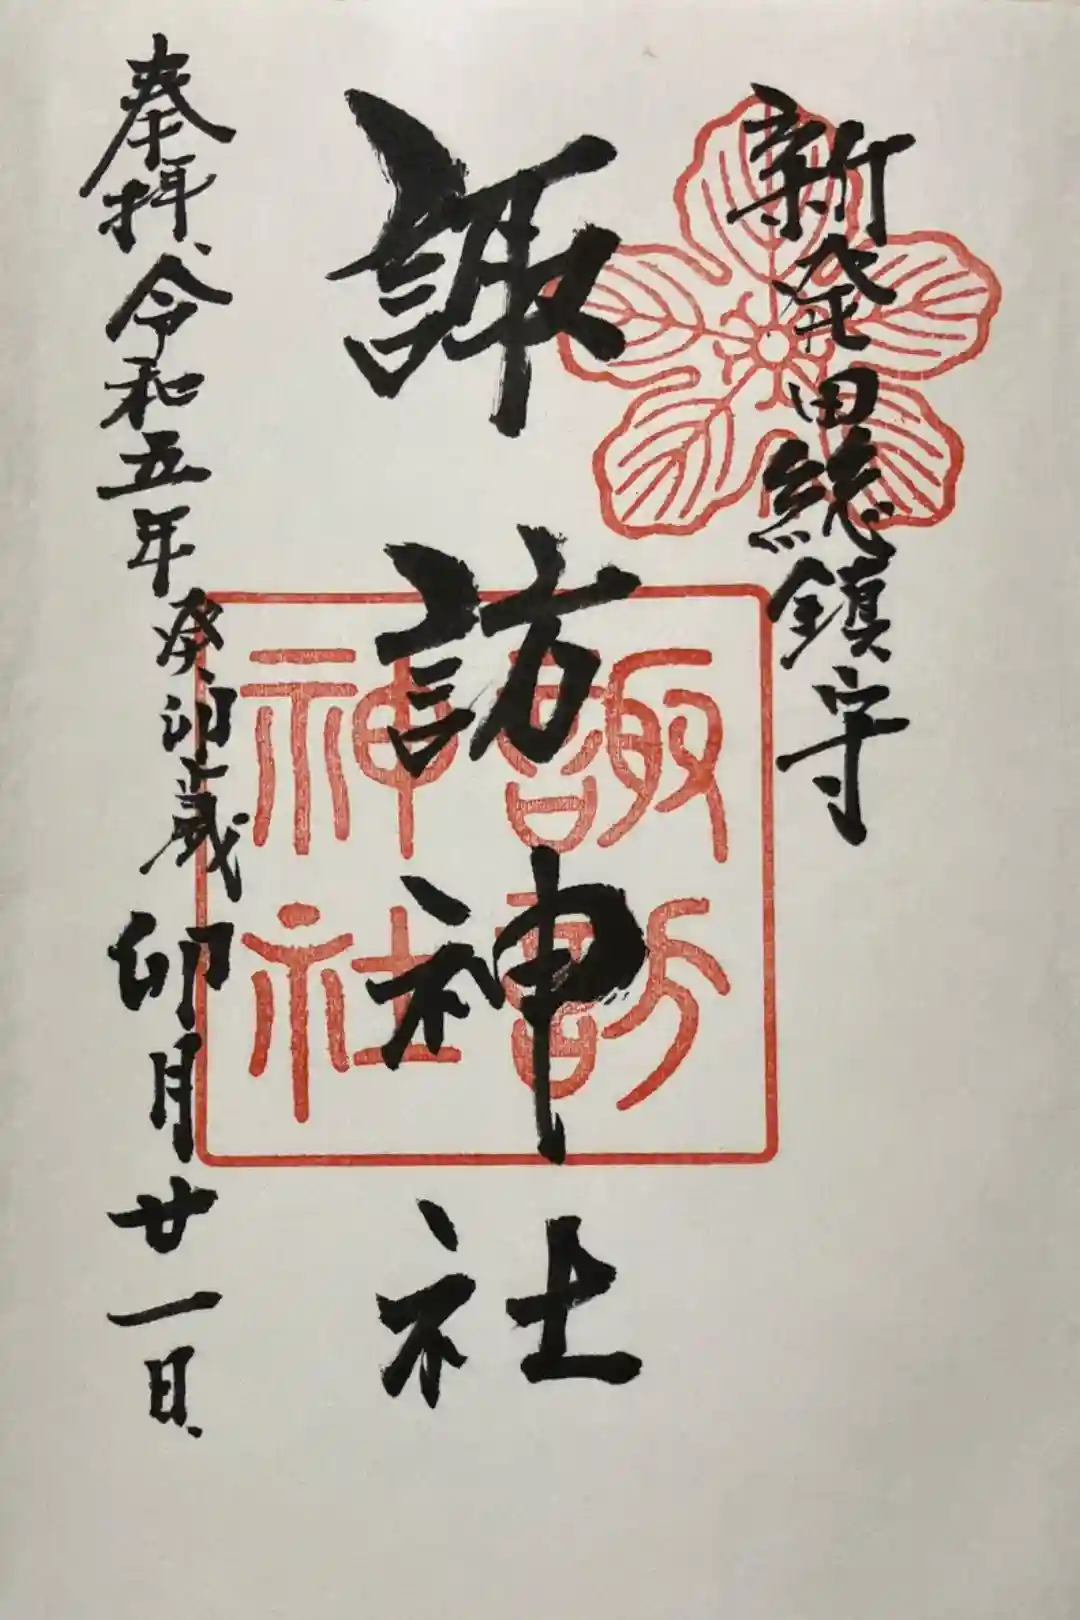 新発田総鎮守
諏訪神社
諏訪
神社
奉拝、令和五年癸卯歳卯月廿一日